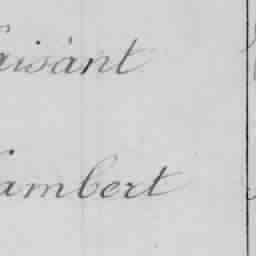 aisant
ambert